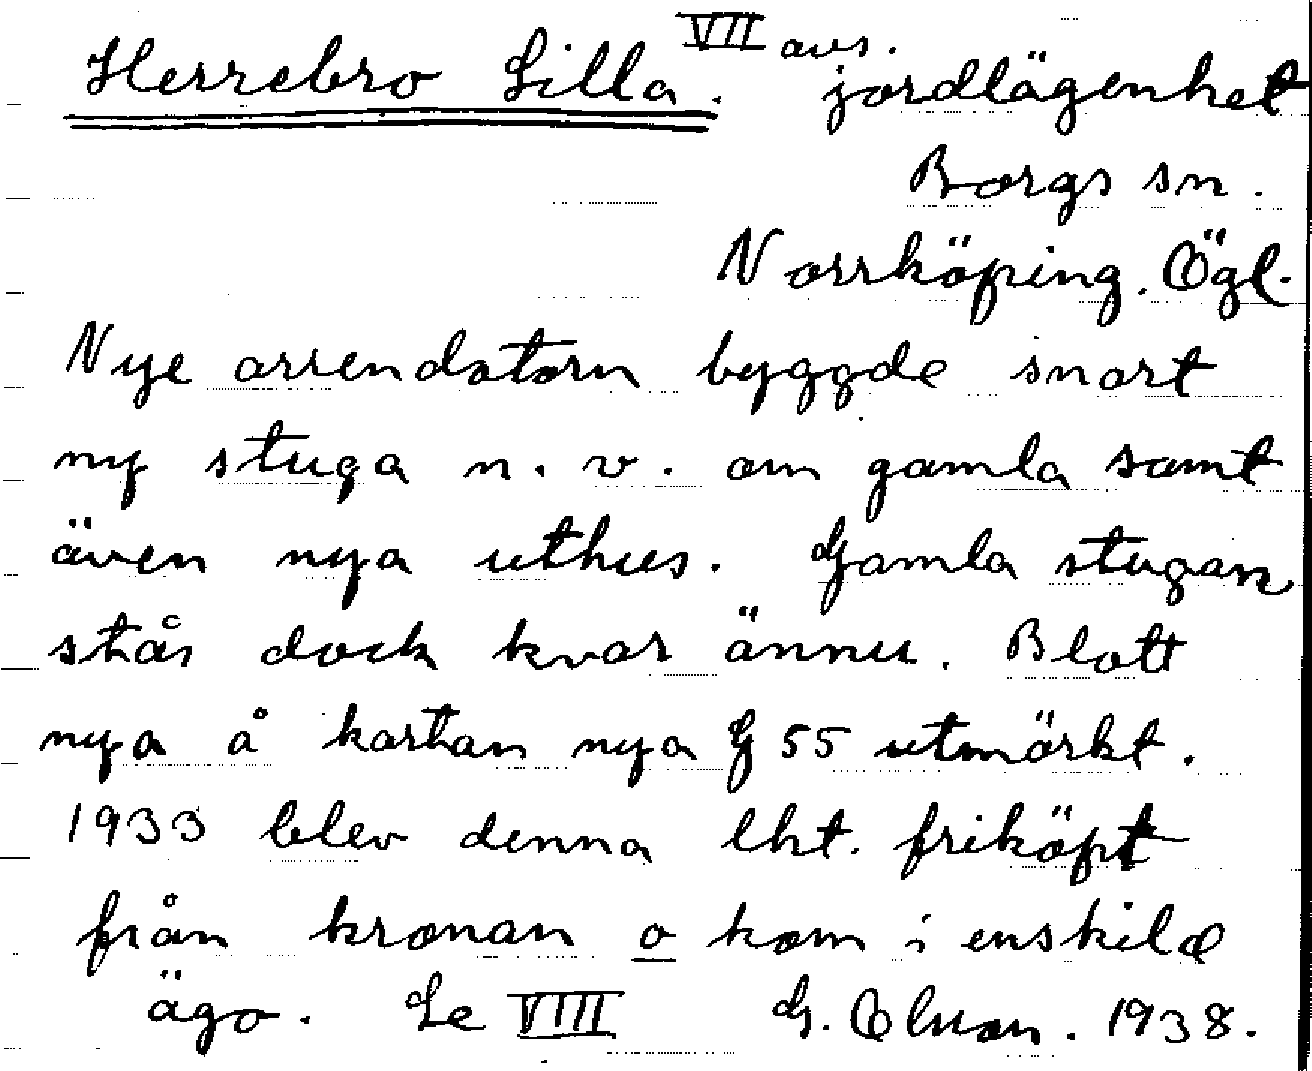 Herrebro Lilla. VII avs. jordlägenhet
Borgs sn.
Norrköping. Ögl.
Nye arrendatorn byggde snart
ny stuga n.v. om gamla samt
även nya uthus. Gamla stugan
står dock kvar ännu. Blott
nya å kartan nya G 55 utmärkt.
1933 blev denna lht. friköpt
från kronan o kom i enskild
ägo. Se VIII G. 1938.